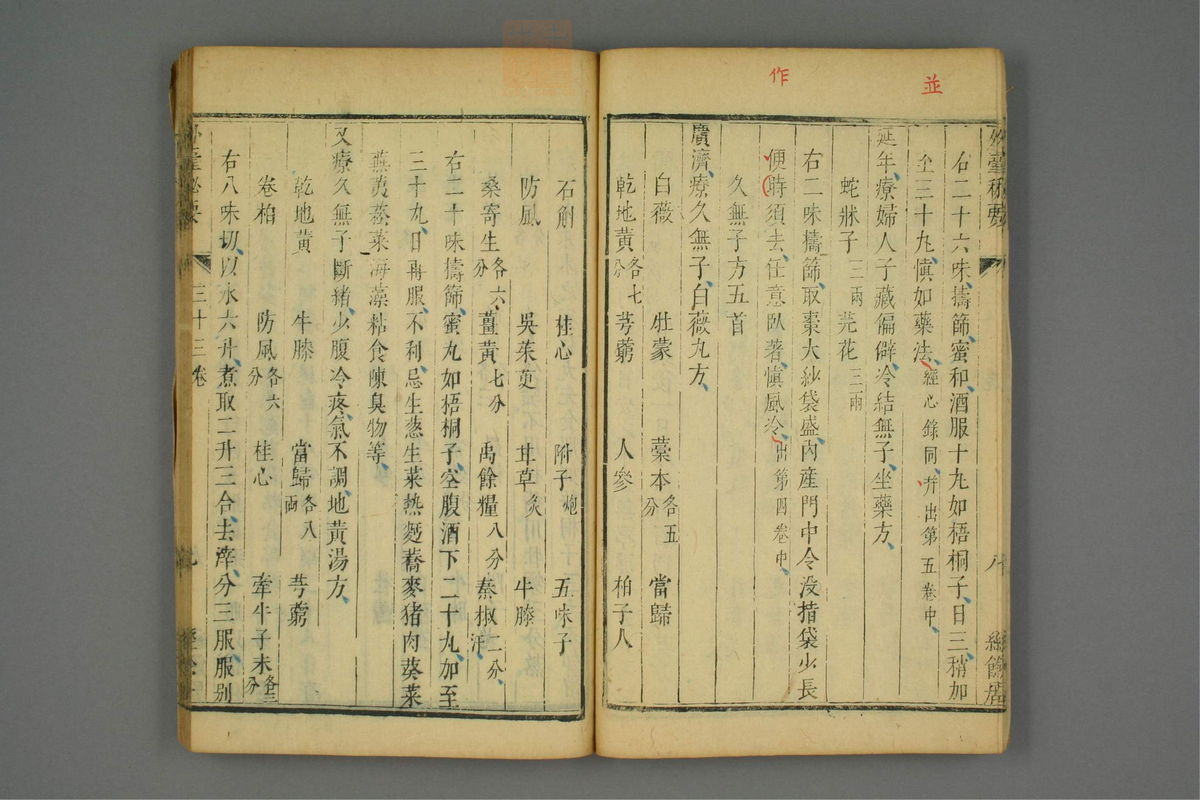 並
作
外臺秘要
八
經餘居
右二十六味擣篩蜜和酒服十丸如梧桐子日三稍加
至三十丸慎如藥法經心錄同并出第五卷中
延年療婦人子藏偏僻冷結無子坐藥方
蛇牀子三兩 芫花三兩
右二味擣篩取棗大紗袋盛內產門中令没指袋少長
便時須去任意臥著慎風冷出第四卷中
久無子方五首
廣濟療久無子白薇丸方
白薇 牡蒙 藁本各五分 當歸
乾地黃各七分 芎藭 人參 柏子人
石斛 桂心 附子炮 五味子
防風 吳茱萸 甘草炙 牛膝
桑寄生各六分 薑黃七分 禹餘糧八分 秦椒二分汗
右二十味擣篩蜜丸如梧桐子空腹酒下二十丸加至
三十丸日再服不利忌生葱生菜熱麪蕎麥猪肉葵菜
蕪荑菘菜海藻粘食陳臭物等
又療久無子斷緒少腹冷疼氣不調地黃湯方
乾地黃 牛膝 當歸各八兩 芎藭
卷柏 防風各六分 桂心 牽牛子末各三分
右八味切以水六升煮取二升三合去滓分三服服别
外臺秘要
三十三卷
九